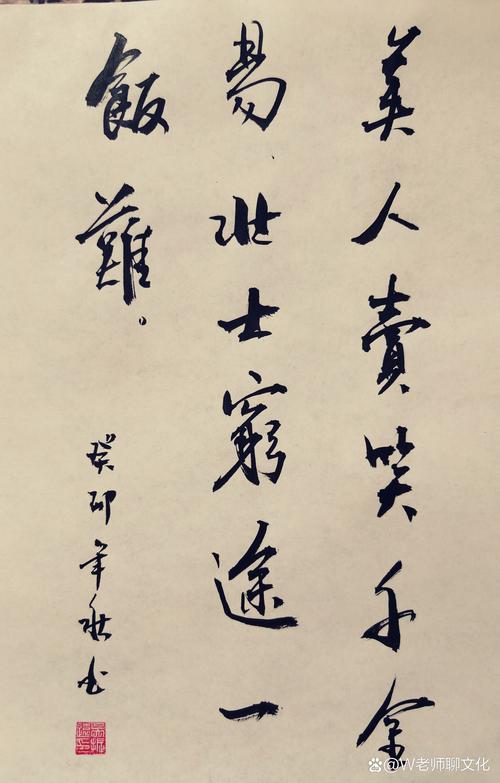 美人賣笑千金
易、壯士窮途一
飯難。
癸卯年秋書
@W老师聊文化